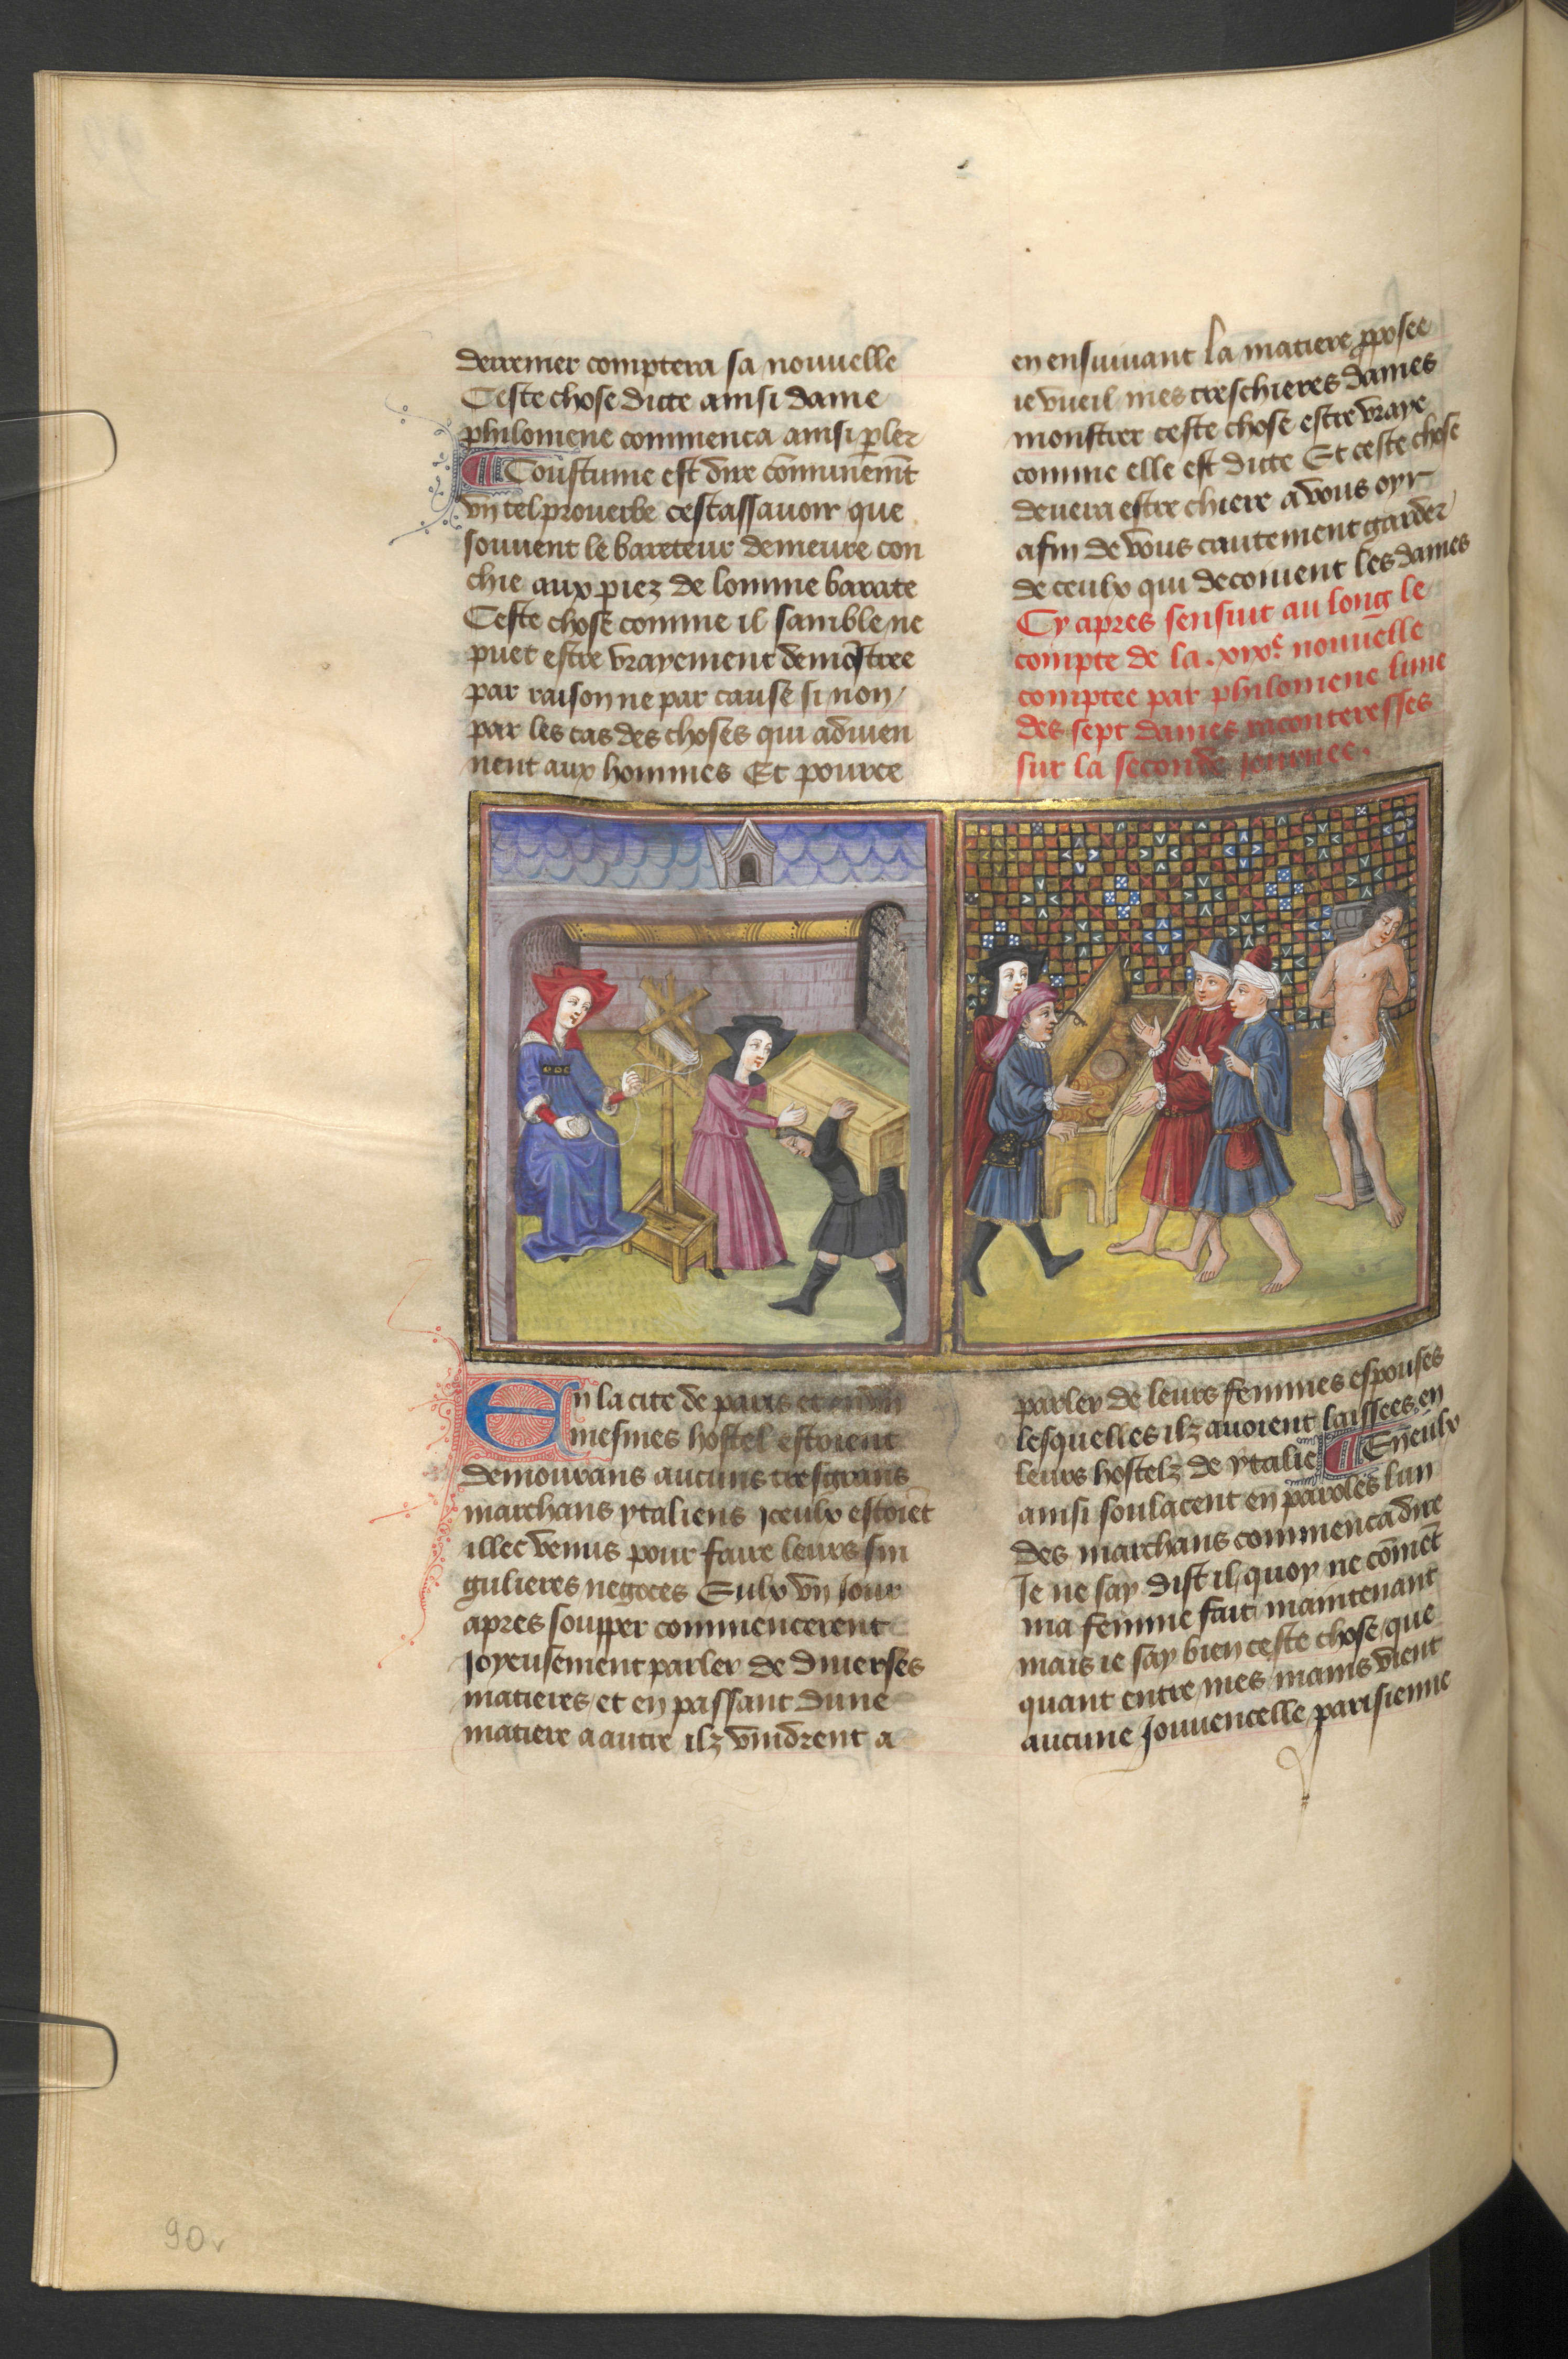 derrenier comptera sa nouuelle
Ceste chose dicte ainsi dame
philomene commenca ainsi pler
Coustume est dire cōmunemēt
vn tel prouerbe cestassauoir que
souuent le bareteur demeure con
chie aux piez de lomme barate
Ceste chose comme il samble ne
puet estre vrayement demōstree
par raison ne par cause si non
par les cas des choses qui aduien
nent aux hommes Et pource
en ensuiuant la matiere pposee
ie vueil mes treschieres dames
monstrer ceste chose estre vraye
comme elle est dicte Et ceste chose
deuera estre chiere a vous oyr
afin de vous cautement garder
de ceulx qui decoiuent les dames
Cy apres sensuit au long le
compte de la .xixe. nouuelle
comptee par philomene lune
des sept dames raconteresses
sur la seconde journee.
En la cite de paris et en vn
mesmes hostel estoient
demourans aucuns tresgrans
marchans ytaliens iceulx estoiēt
illec venus pour faire leurs sin
gulieres negoces Eulx vn jour
apres soupper commencerent
joyeusement parler de diuerses
matieres et en passant dune
matiere a autre ilz vindrent a
parler de leurs femmes espouses
lesquelles ilz auoient laissees en
leurs hostelz de ytalie En eulx
ainsi soulacent en paroles lun
des marchans commenca dire
Je ne say dist il quoy ne cōmēt
ma femme fait maintenant
mais ie say bien ceste chose que
quant entre mes mains vient
aucune jouuencelle parisienne
90v